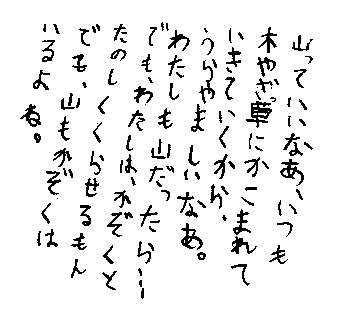 山っていいなあ、いつも
木やざっ草にかこまれて
いきていくから、
うらやましいなあ。
わたしも山だったら…
でも、わたしは、かぞくと
たのしくくらせるもん
でも、山もかぞくは
いるよね。